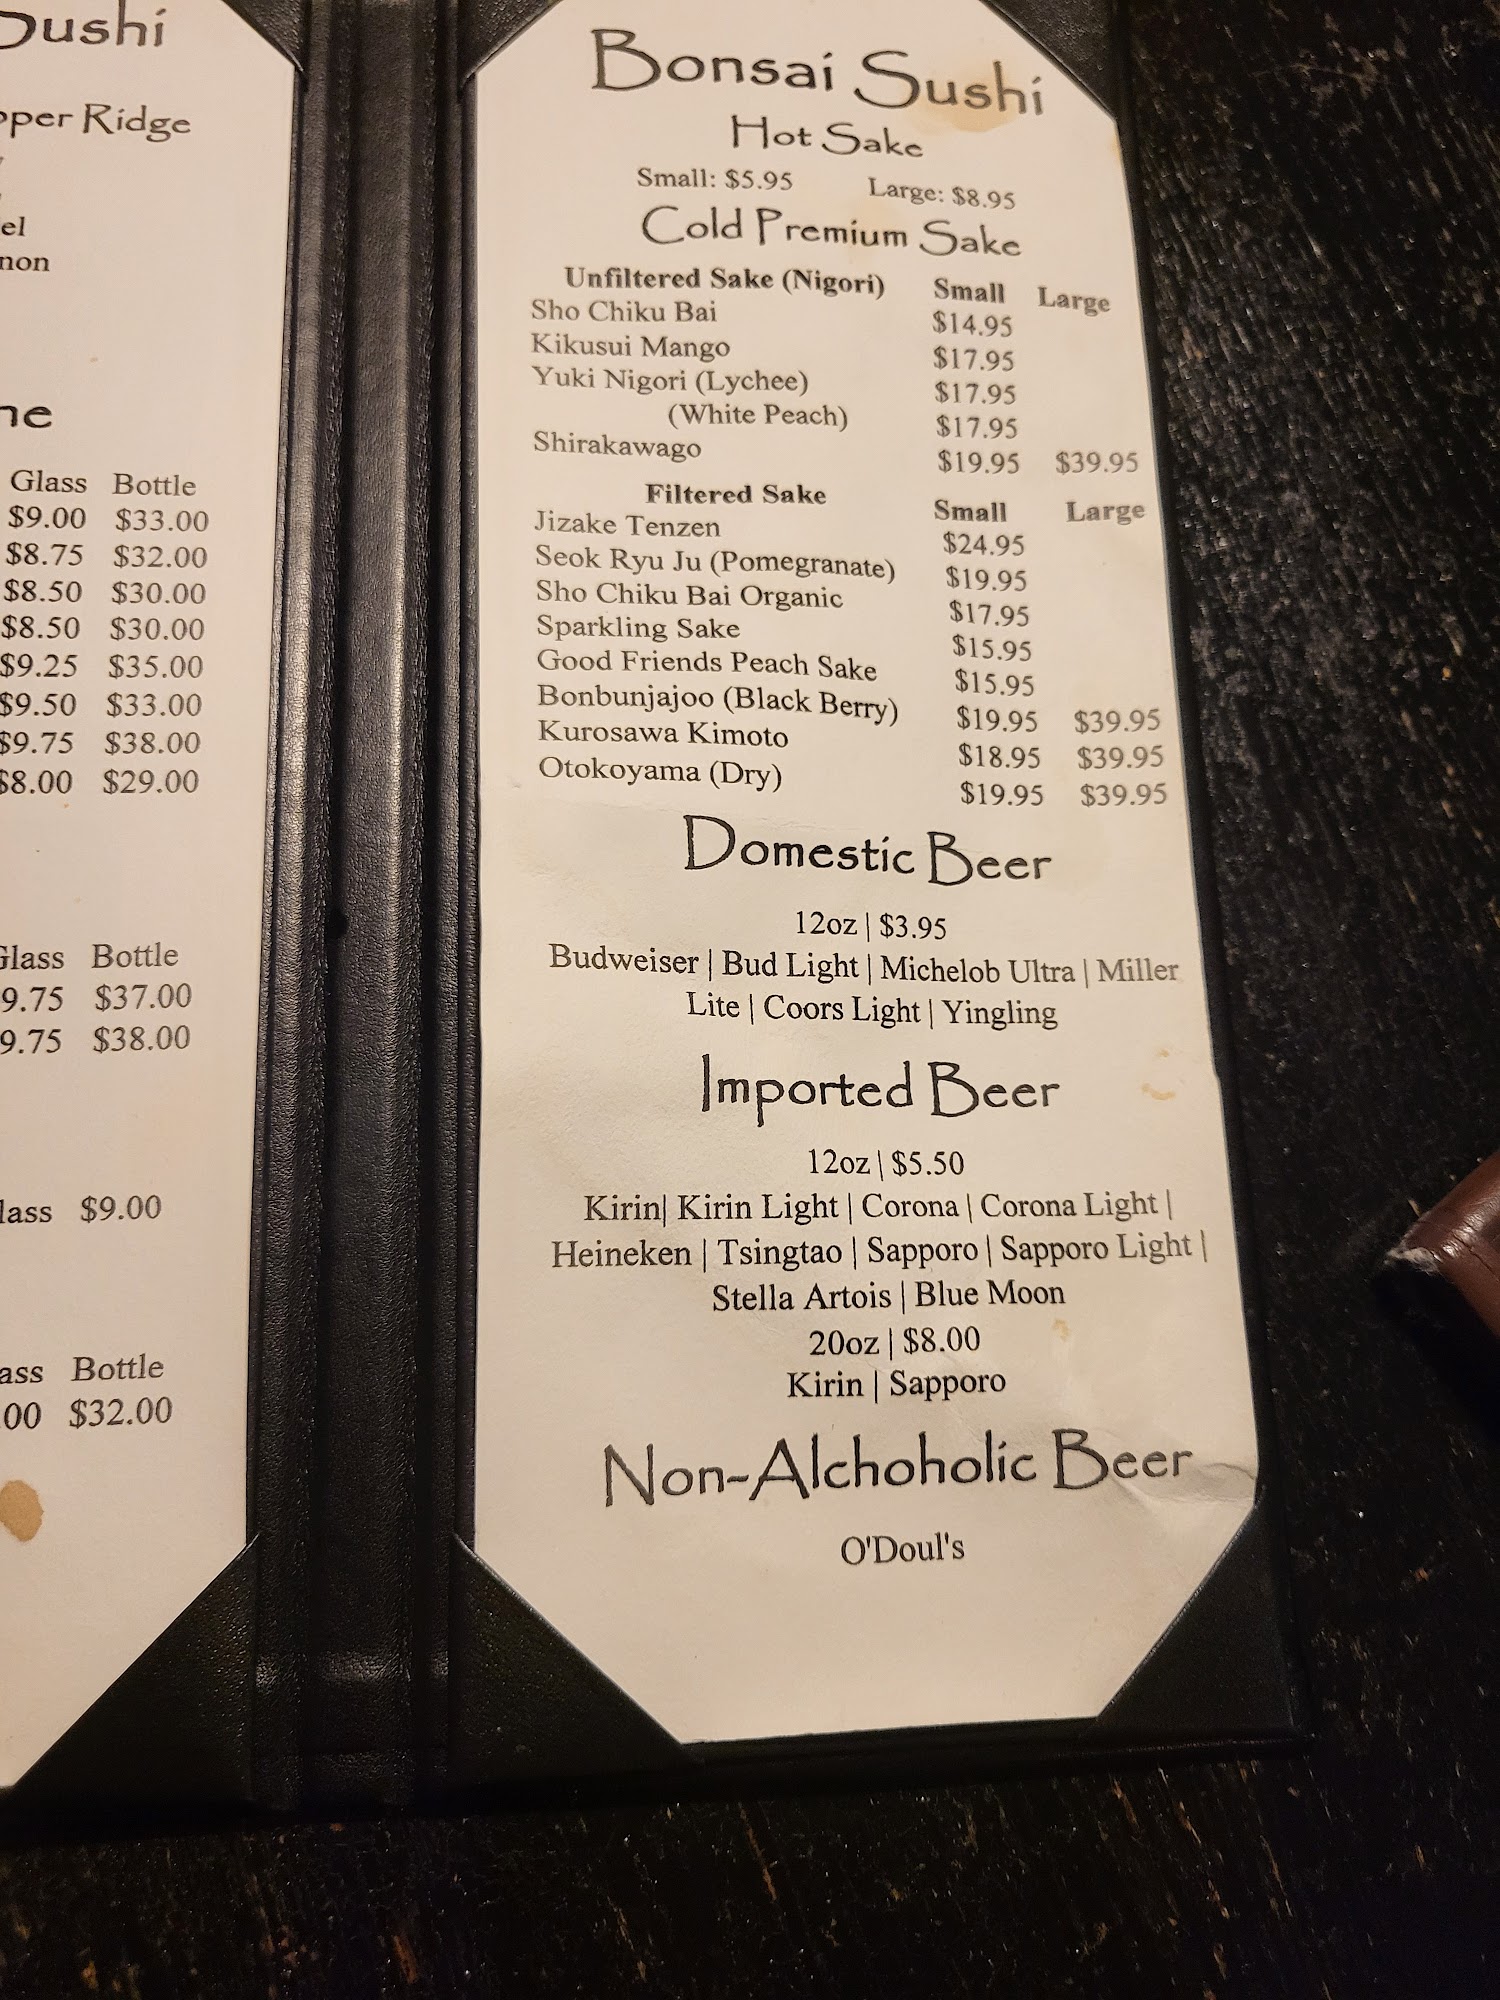 Sushi
Ridge
Glass Bottle
$9.00 $33.00
$8.75 $32.00
$8.50 $30.00
$8.50 $30.00
$9.25 $35.00
$9.50 $33.00
$9.75 $38.00
$8.00 $29.00
Glass Bottle
9.75 $37.00
9.75 $38.00
$9.00
Bottle
.00 $32.00
Bonsai Sushi
Hot Sake
Small: $5.95 Large: $8.95
Cold Premium Sake
Unfiltered Sake (Nigori) Small Large
Sho Chiku Bai $14.95
Kikusui Mango $17.95
Yuki Nigori (Lychee) $17.95
(White Peach) $17.95
Shirakawago $19.95 $39.95
Filtered Sake Small Large
Jizake Tenzen $24.95
Seok Ryu Ju (Pomegranate) $19.95
Sho Chiku Bai Organic $17.95
Sparkling Sake $15.95
Good Friends Peach Sake $15.95
Bonbunjajoo (Black Berry) $19.95 $39.95
Kurosawa Kimoto $18.95 $39.95
Otokoyama (Dry) $19.95 $39.95
Domestic Beer
12oz | $3.95
Budweiser | Bud Light | Michelob Ultra | Miller
Lite | Coors Light | Yingling
Imported Beer
12oz | $5.50
Kirin| Kirin Light | Corona | Corona Light |
Heineken | Tsingtao | Sapporo | Sapporo Light |
Stella Artois | Blue Moon
20oz | $8.00
Kirin | Sapporo
Non-Alchoholic Beer
O'Doul's